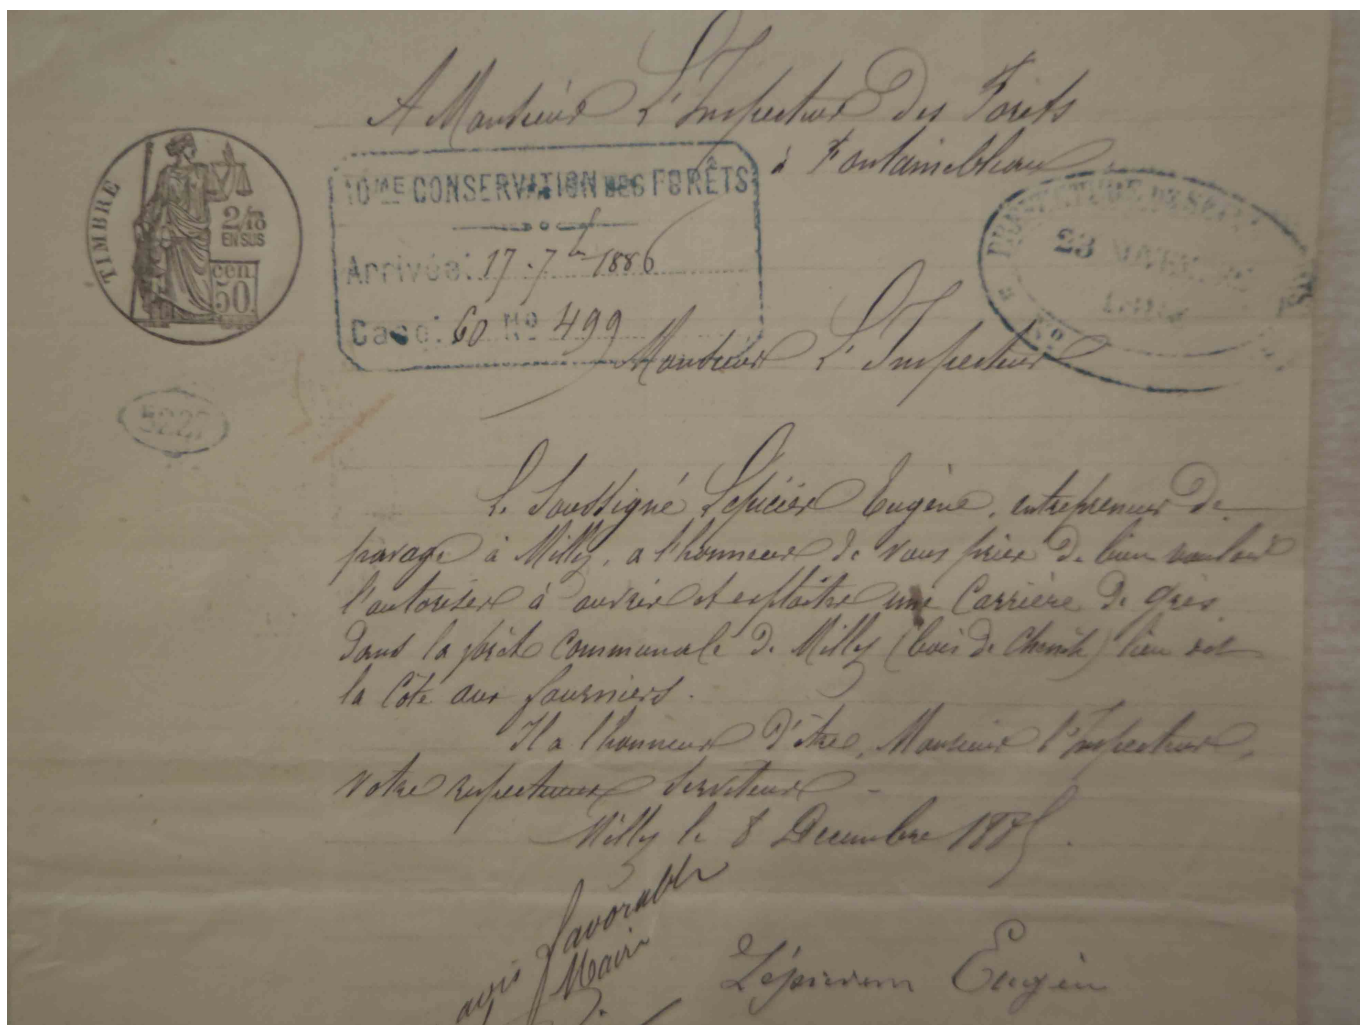 A Monsieur L'Inspecteur des Forêts
à Fontainebleau
TIMBRE
2/10
EN SUS
50 cen
10ME CONSERVATION DES FORÊTS
Arrivée: 17 . 7bre 1886
Case: 60 No 499
PREFECTURE DE SEINE
23 NOVEMBRE
No
5227
Monsieur L'Inspecteur
Le Soussigné Eugène, entrepreneur de
pavage à Milly, a l'honneur de vous prier de bien vouloir
l'autoriser à ouvrir et exploiter une Carrière de grès
dans la forêt Communale de Milly (bois de ) lieu dit
la Côte aux fourniers.
Il a l'honneur d'être, Monsieur l'Inspecteur,
votre respectueux Serviteur
Milly le 8 Decembre 1885.
avis favorable
Maire
Eugèn